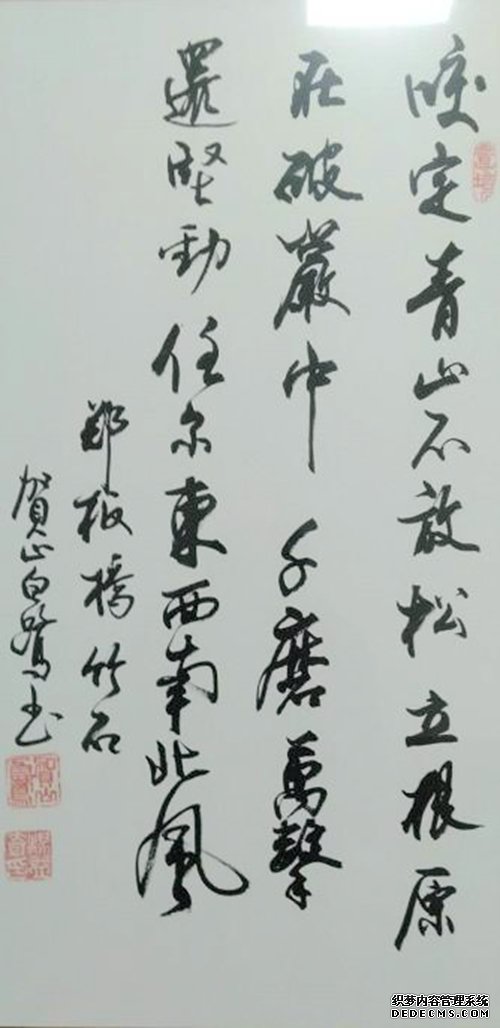 咬定青山不放松立根原
在破巖中千磨萬擊
還堅勁任尔東西南北風
鄭板橋竹石
賀山白鷺书
织梦内容管理系统
DEDECMS.COM